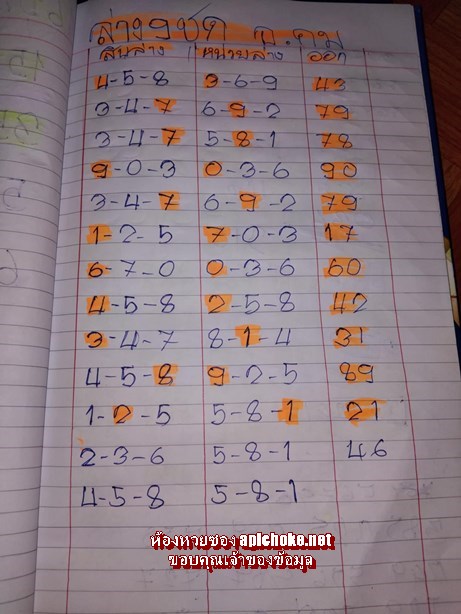 ล่าง 9 ชุด อ.คม
สิบล่าง หน่วยล่าง ออก
4-5-8 3-6-9 43
3-4-7 6-9-2 79
3-4-7 5-8-1 78
9-0-3 0-3-6 90
3-4-7 6-9-2 79
1-2-5 7-0-3 17
6-7-0 0-3-6 60
4-5-8 2-5-8 42
3-4-7 8-1-4 31
4-5-8 9-2-5 89
1-2-5 5-8-1 21
2-3-6 5-8-1 46
4-5-8 5-8-1
ห้องหวยซอง apichoke.net
ขอบคุณเจ้าของข้อมูล